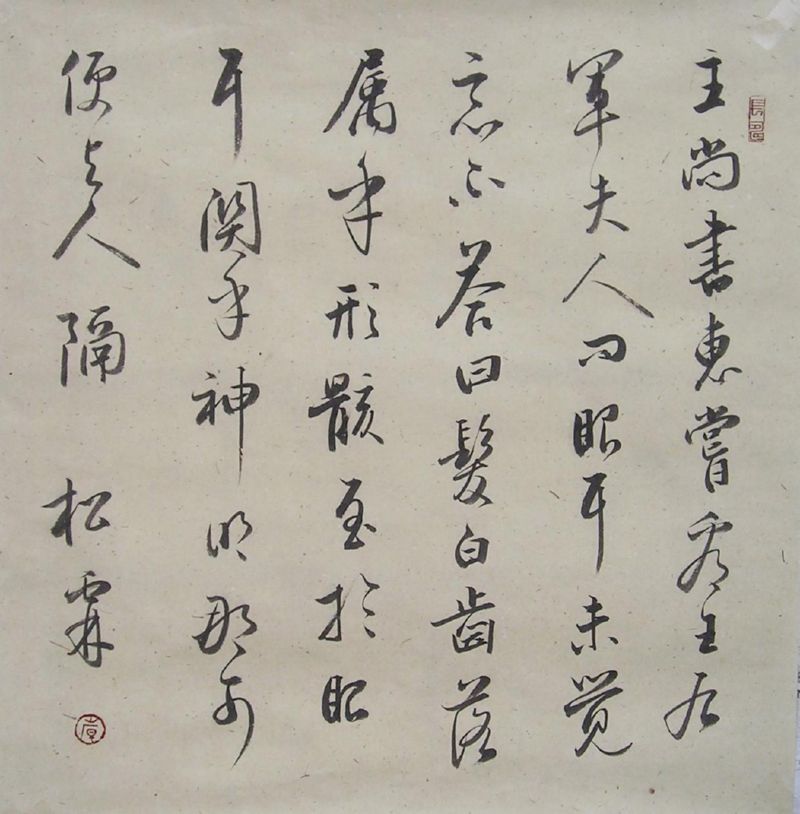 王尚書惠嘗看王右
軍夫人问眼耳未觉
惡不荅曰髮白齒落
属乎形骸至於眼
耳関乎神明那可
便与人隔 松霖